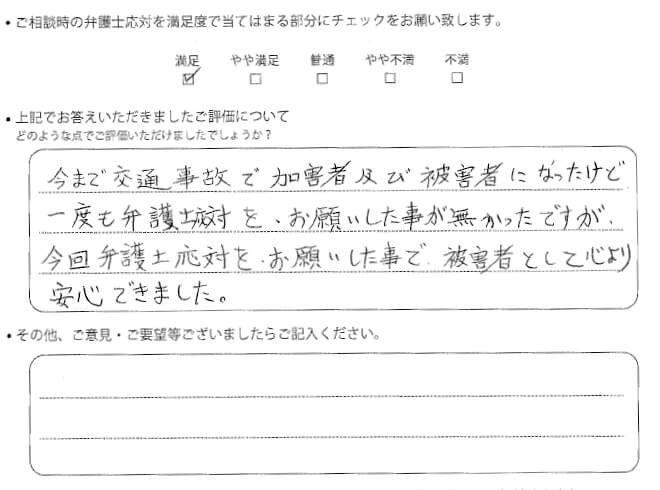 • ご相談時の弁護士応対を満足度で当てはまる部分にチェックをお願い致します。
満足 やや満足 普通 やや不満 不満
☑ ☐ ☐ ☐ ☐
• 上記でお答えいただきましたご評価について
どのような点でご評価いただけましたでしょうか？
今まで交通事故で加害者及び被害者になったけど
一度も弁護士応対を、お願いした事が無かったですが、
今回弁護士応対を、お願いした事で、被害者として心より
安心できました。
• その他、ご意見・ご要望等ございましたらご記入ください。